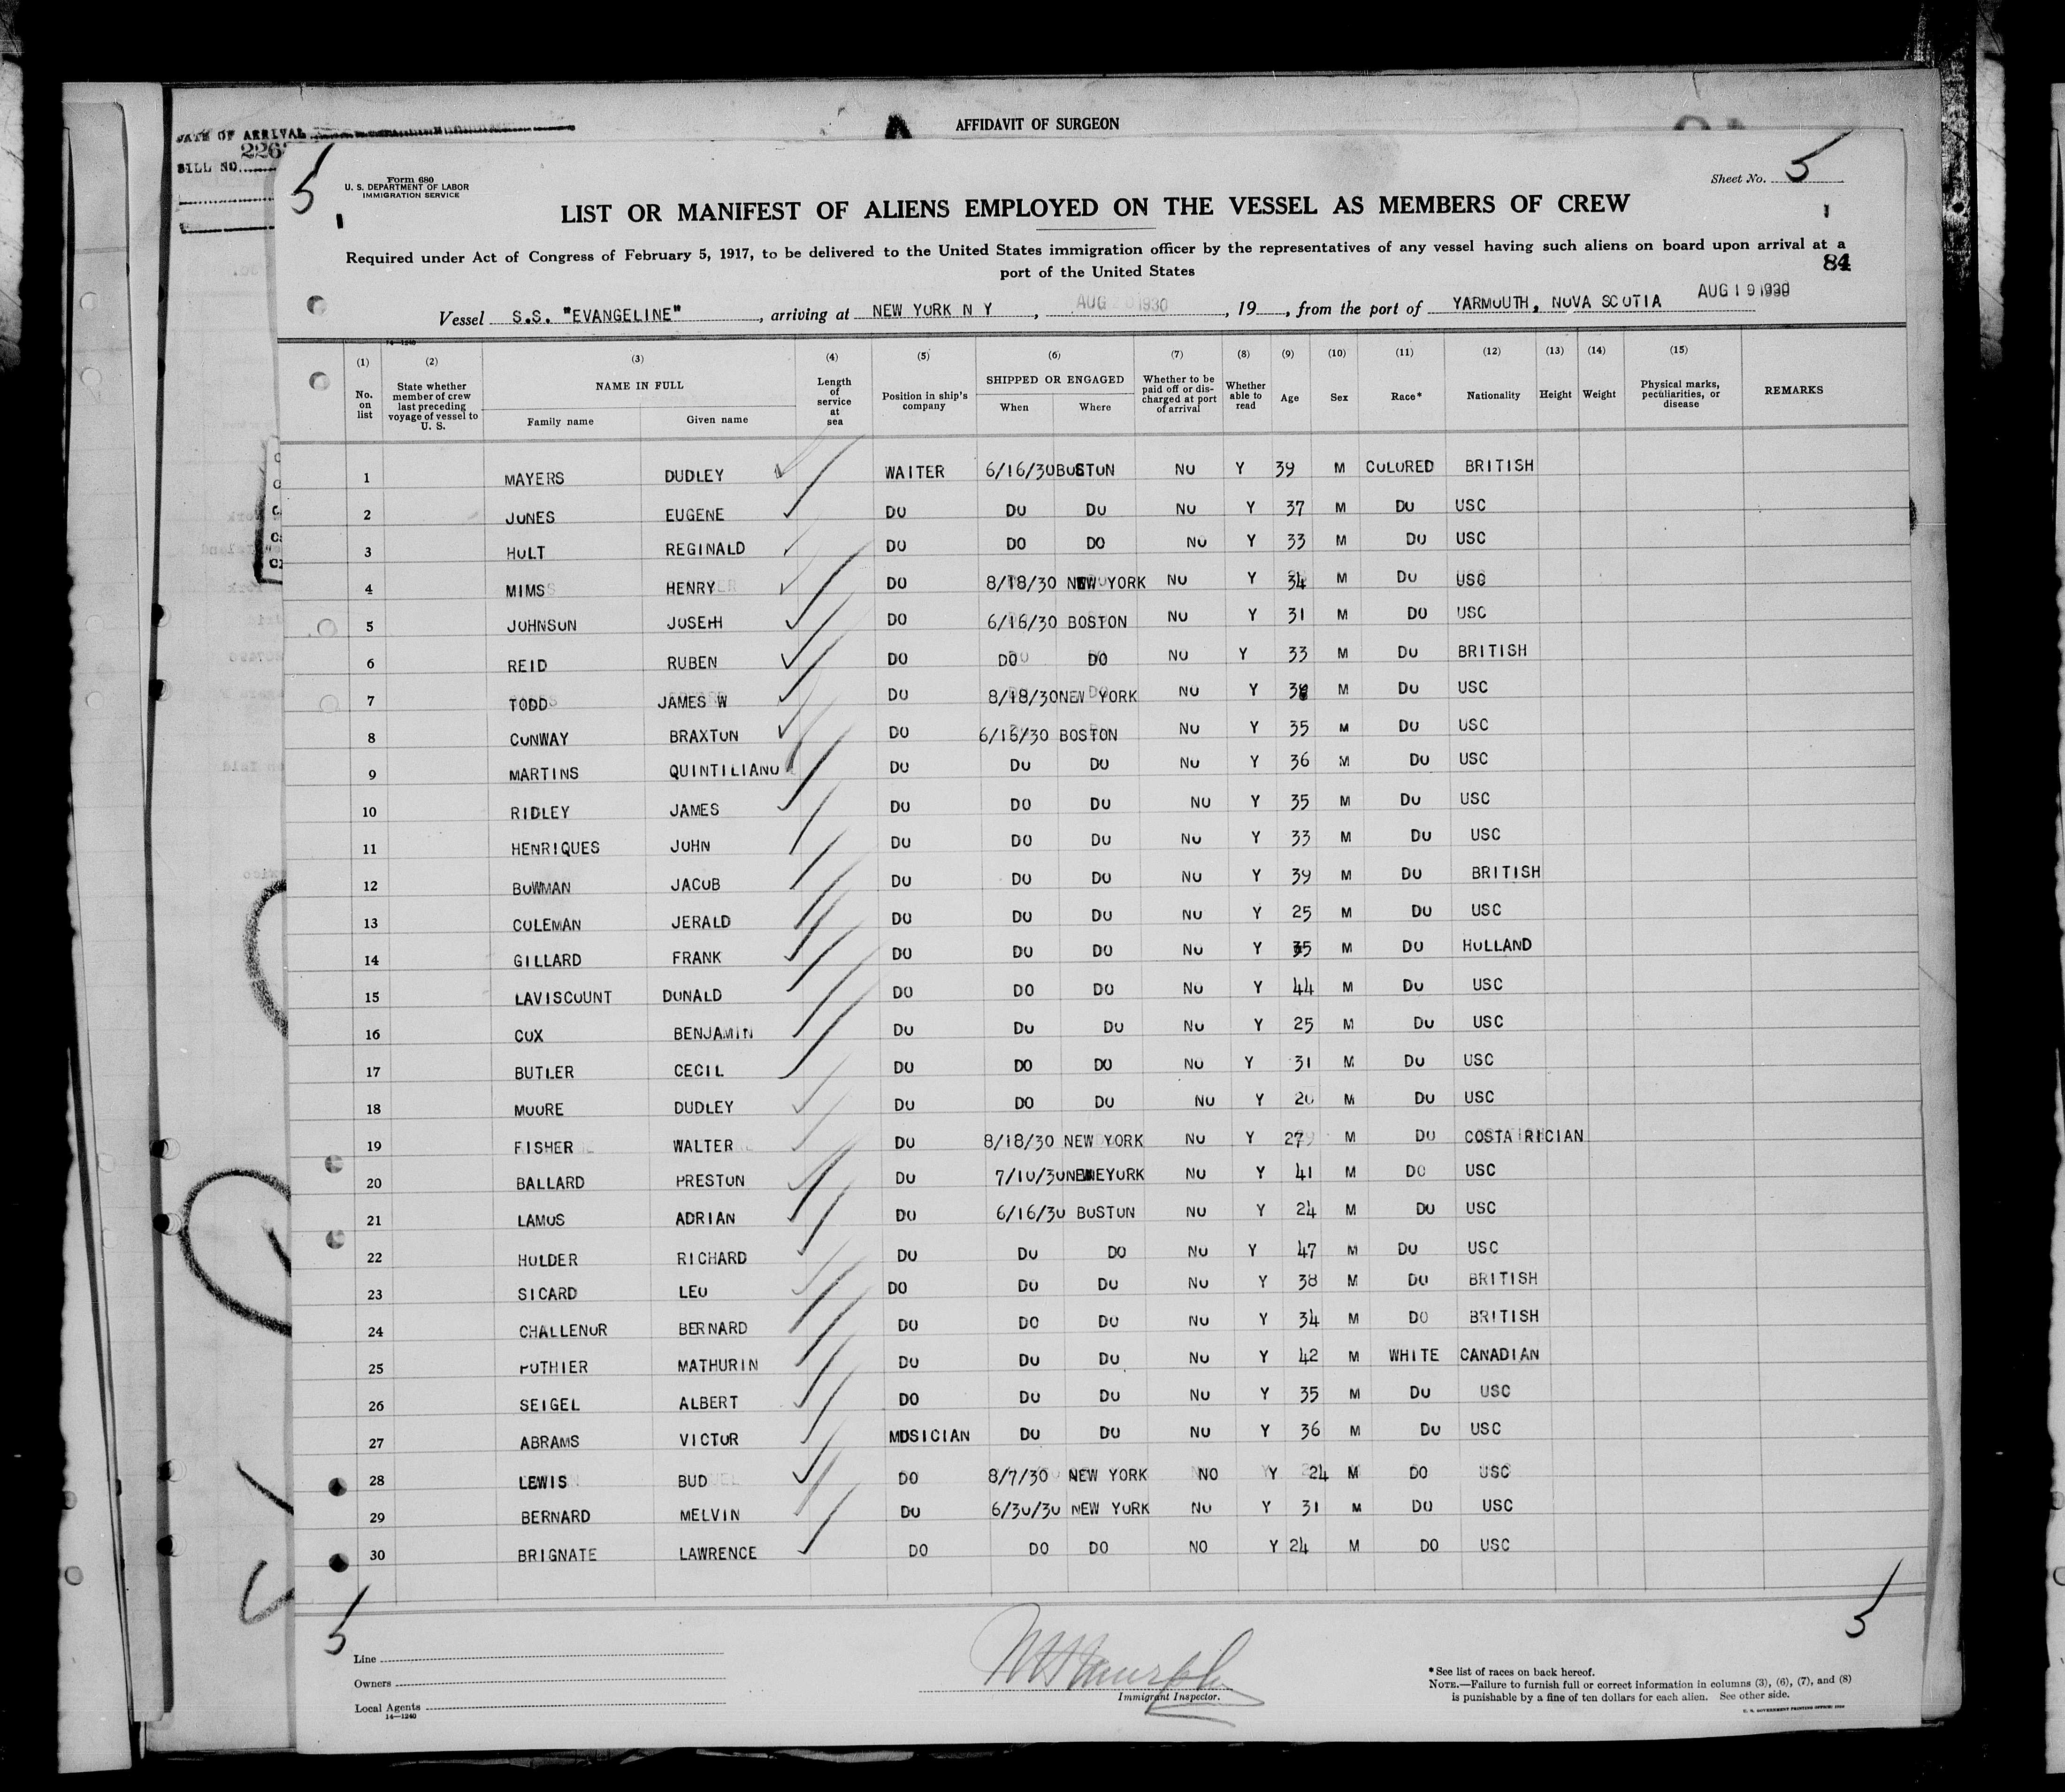 AFFIDAVIT OF SURGEON
DATE OF ARRIVAL
BILL NO.
5
Form 680
U. S. DEPARTMENT OF LABOR
IMMIGRATION SERVICE
Sheet No. 5
LIST OR MANIFEST OF ALIENS EMPLOYED ON THE VESSEL AS MEMBERS OF CREW
Required under Act of Congress of February 5, 1917, to be delivered to the United States immigration officer by the representatives of any vessel having such aliens on board upon arrival at a
port of the United States
84
Vessel S.S. "EVANGELINE", arriving at NEW YORK N Y, AUG 20 1930, 19, from the port of YARMOUTH, NOVA SCOTIA AUG 19 1930
14—1240
(1) (2) (3) (4) (5) (6) (7) (8) (9) (10) (11) (12) (13) (14) (15)
No. on list State whether member of crew last preceding voyage of vessel to U. S. NAME IN FULL Family name Given name Length of service at sea Position in ship's company SHIPPED OR ENGAGED When Where Whether to be paid off or discharged at port of arrival Whether able to read Age Sex Race* Nationality Height Weight Physical marks, peculiarities, or disease REMARKS
1 MAYERS DUDLEY WAITER 6/16/30 BOSTON NO Y 39 M COLORED BRITISH
2 JONES EUGENE DO DO DO NO Y 37 M DO USC
3 HOLT REGINALD DO DO DO NO Y 33 M DO USC
4 MIMS HENRY DO 8/18/30 NEW YORK NO Y 34 M DO USC
5 JOHNSON JOSEPH DO 6/16/30 BOSTON NO Y 31 M DO USC
6 REID RUBEN DO DO DO NO Y 33 M DO BRITISH
7 TODD JAMES W DO 8/18/30 NEW YORK NO Y M DO USC
8 CONWAY BRAXTON DO 6/16/30 BOSTON NO Y 35 M DO USC
9 MARTINS QUINTILIANO DO DO DO NO Y 36 M DO USC
10 RIDLEY JAMES DO DO DO NO Y 35 M DO USC
11 HENRIQUES JOHN DO DO DO NO Y 33 M DO USC
12 BOWMAN JACOB DO DO DO NO Y 39 M DO BRITISH
13 COLEMAN JERALD DO DO DO NO Y 25 M DO USC
14 GILLARD FRANK DO DO DO NO Y 35 M DO HOLLAND
15 LAVISCOUNT DONALD DO DO DO NO Y 44 M DO USC
16 COX BENJAMIN DO DO DO NO Y 25 M DO USC
17 BUTLER CECIL DO DO DO NO Y 31 M DO USC
18 MOORE DUDLEY DO DO DO NO Y 20 M DO USC
19 FISHER WALTER DO 8/18/30 NEW YORK NO Y 27 M DO COSTA RICIAN
20 BALLARD PRESTON DO 7/10/30 NEW YORK NO Y 41 M DO USC
21 LAMOS ADRIAN DO 6/16/30 BOSTON NO Y 24 M DO USC
22 HOLDER RICHARD DO DO DO NO Y 47 M DO USC
23 SICARD LEO DO DO DO NO Y 38 M DO BRITISH
24 CHALLENOR BERNARD DO DO DO NO Y 34 M DO BRITISH
25 POTHIER MATHURIN DO DO DO NO Y 42 M WHITE CANADIAN
26 SEIGEL ALBERT DO DO DO NO Y 35 M DO USC
27 ABRAMS VICTOR MUSICIAN DO DO NO Y 36 M DO USC
28 LEWIS BUD DO 8/7/30 NEW YORK NO Y 24 M DO USC
29 BERNARD MELVIN DO 6/30/30 NEW YORK NO Y 31 M DO USC
30 BRIGNATE LAWRENCE DO DO DO NO Y 24 M DO USC
5 5
Line
Owners
Local Agents
14—1240
Immigrant Inspector.
*See list of races on back hereof.
NOTE.—Failure to furnish full or correct information in columns (3), (6), (7), and (8)
is punishable by a fine of ten dollars for each alien. See other side.